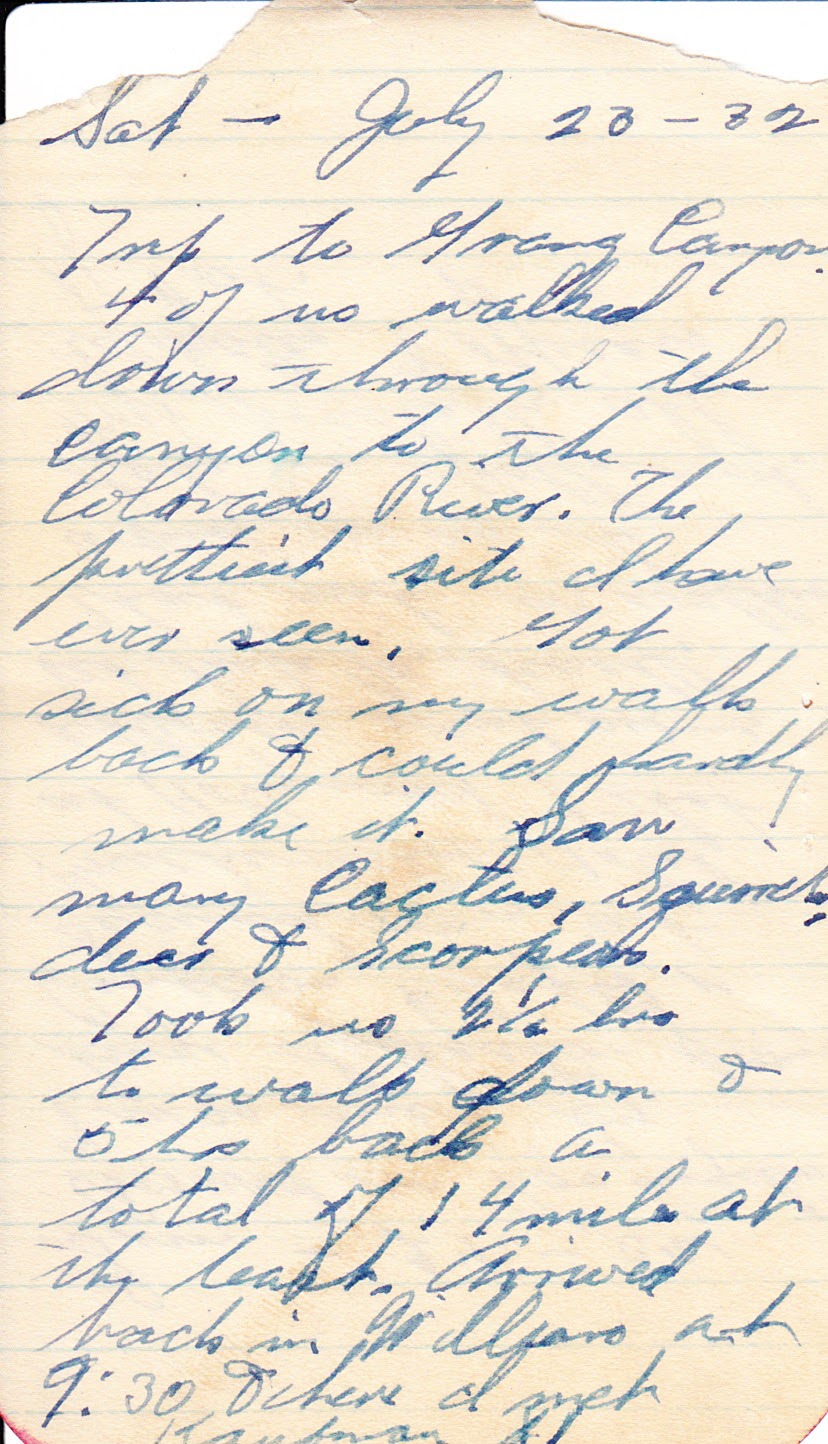 Sat - July 23 - 32
Trip to Grang Canyon.
4 of us walked
down through the
canyon to the
Colorado River. The
prettiest site I have
ever seen. Got
sick on my walk
back & could hardly
make it. Saw
many Cactus, Squirrels,
deer & scorpions.
Took us 2½ hrs
to walk down &
5 hrs back a
total of 14 miles at
the least. Arrived
back in Williams at
9:30 & here I met
Kaufman &